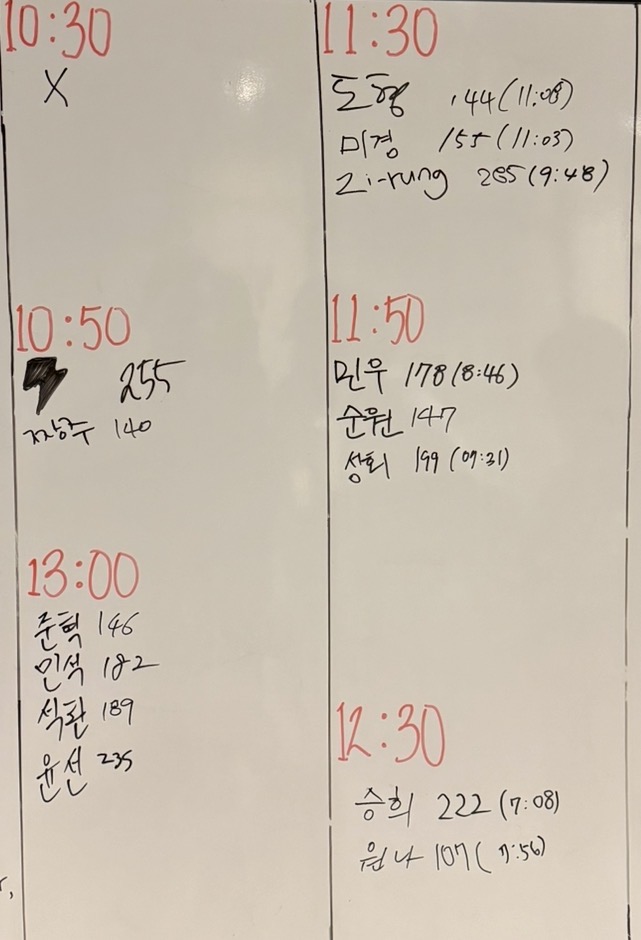 10:30
X
10:50
255
짜장주 140
13:00
준혁 146
민석 182
석환 189
윤선 235
11:30
도형 144 (11:08)
미경 155 (11:03)
Zi-rung 285 (9:48)
11:50
민우 178 (8:46)
순원 147
상희 199 (07:31)
12:30
승희 222 (7:08)
원나 107 (7:56)